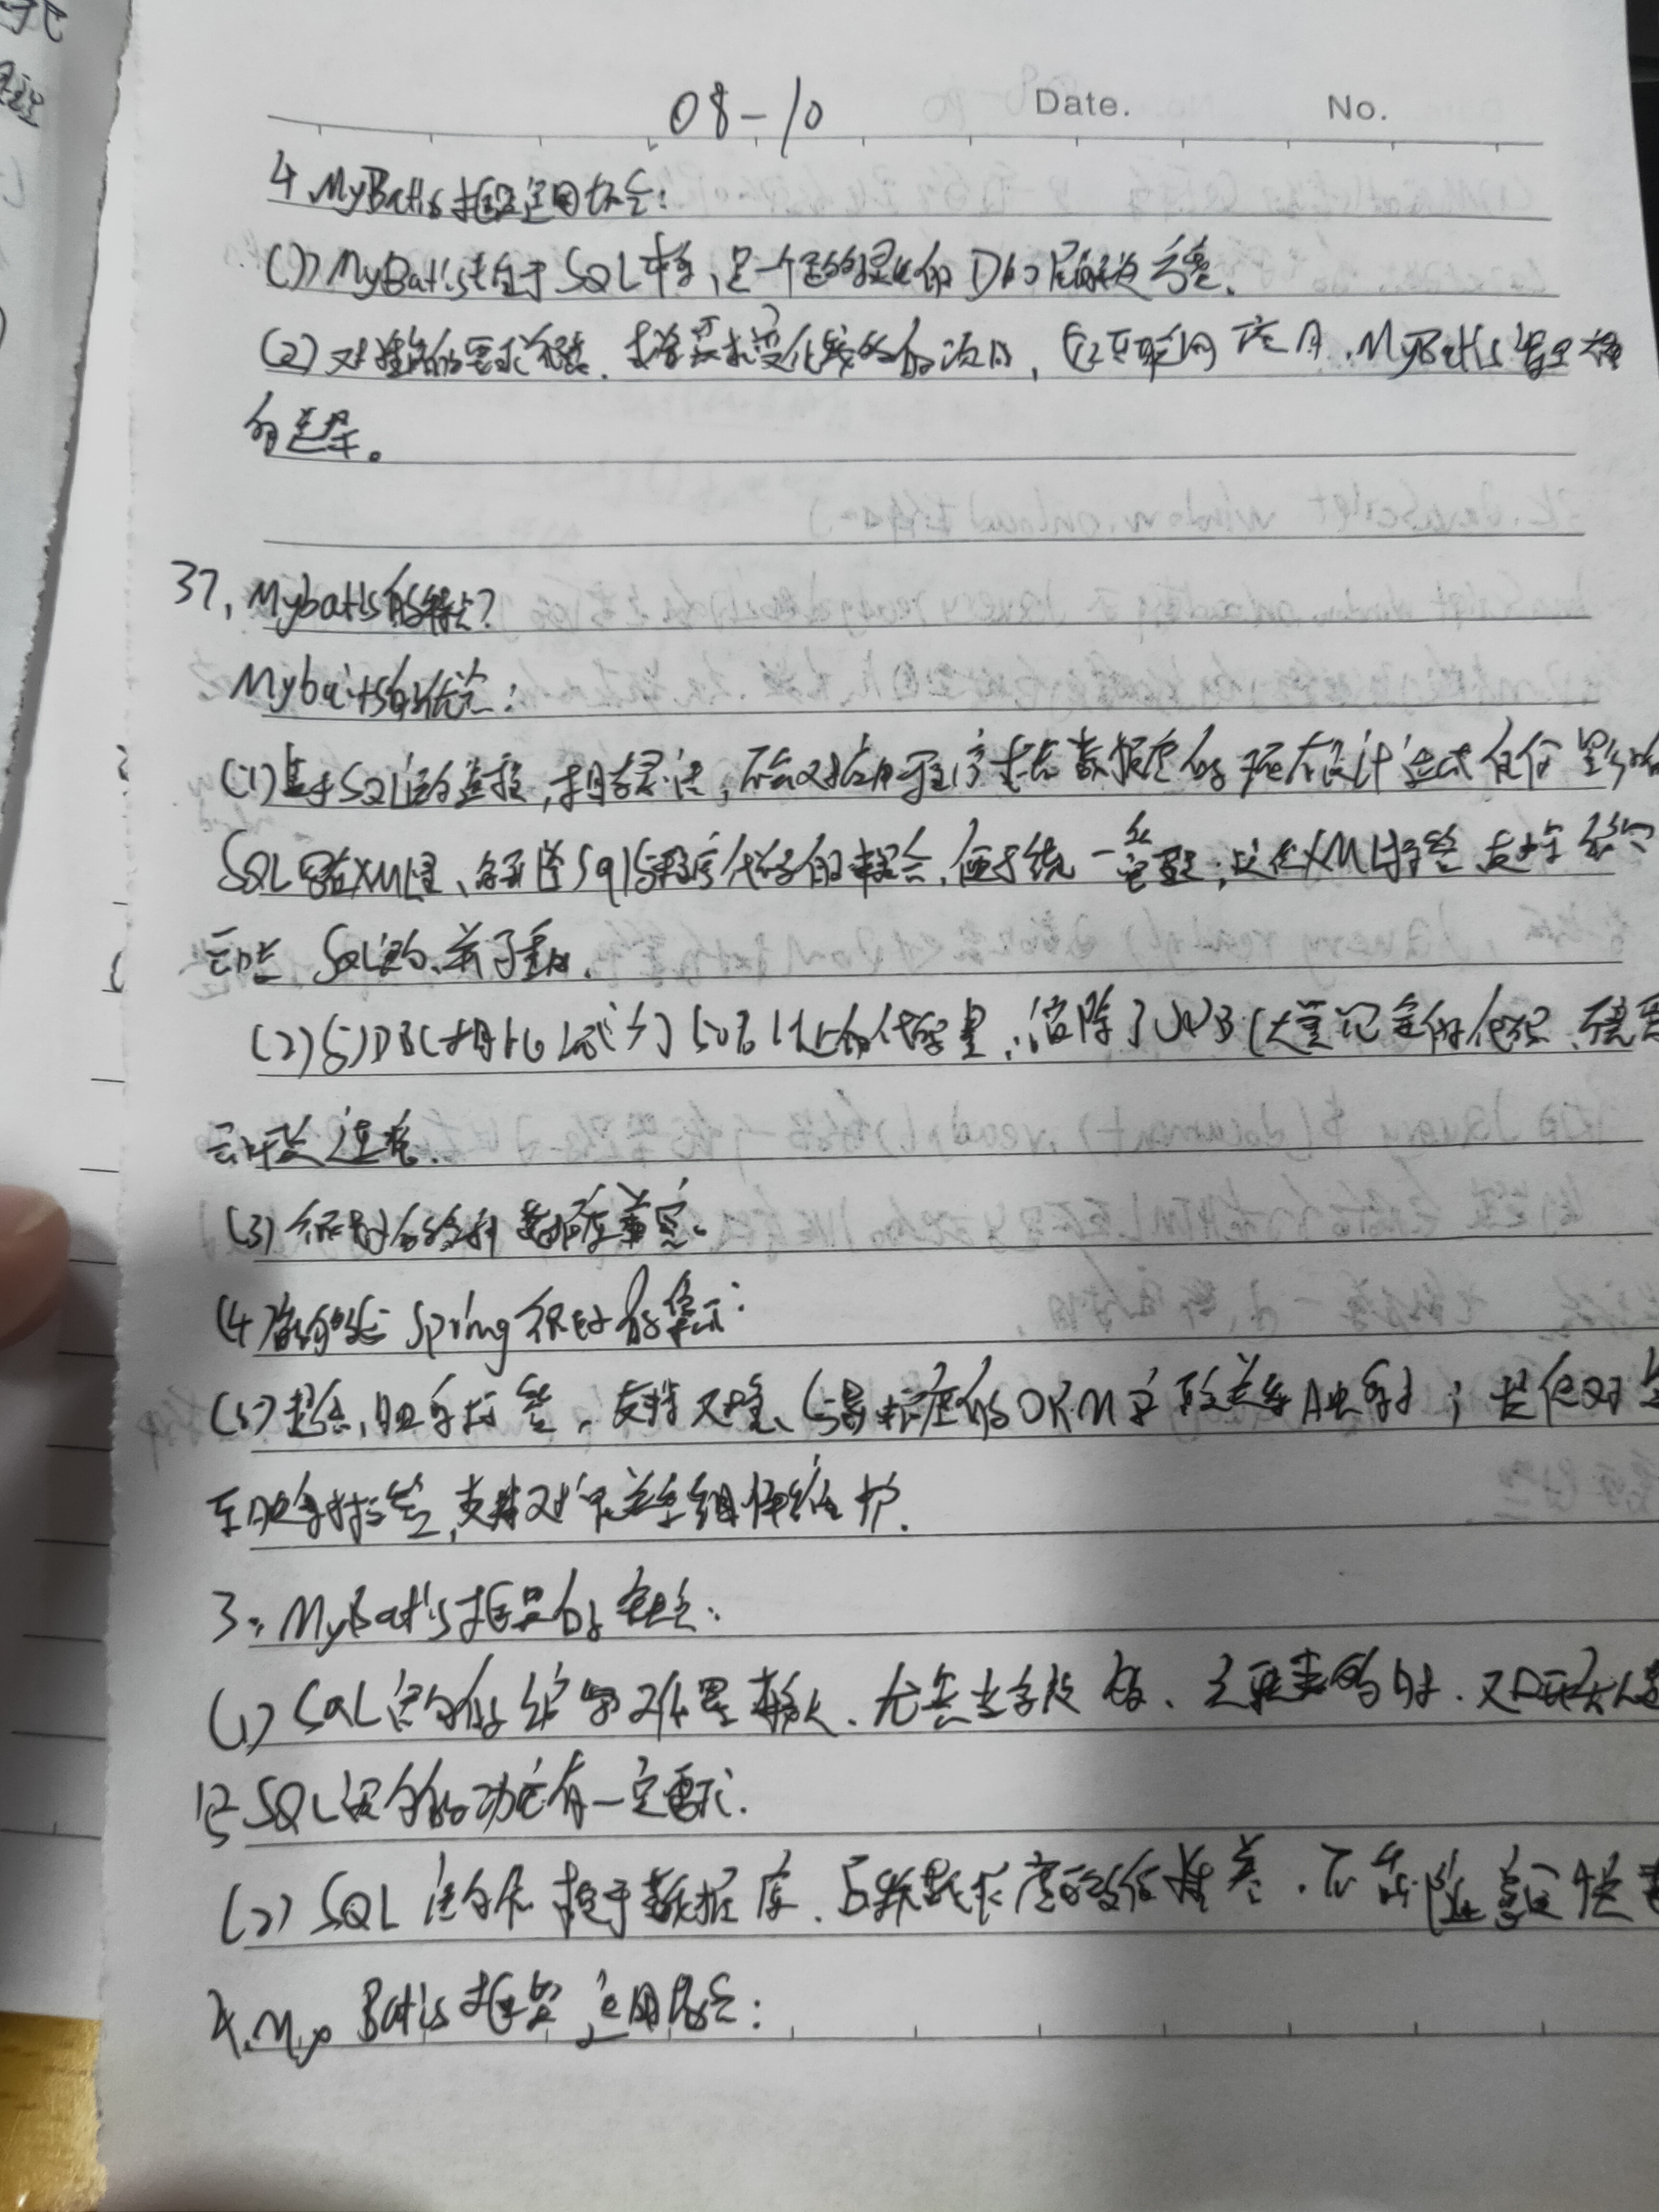 08-10 Date. No.
4 MyBatis框架适用场合:
(1) MyBatis专注于SQL本身,是一个足够灵活的DAO层解决方案.
(2) 对性能的要求很高,或者需求变化较多的项目,如互联网应用,MyBatis将是不错
的选择。
37, Mybatis的特点?
Mybaits的优点:
(1) 基于SQL语句编程,相当灵活,不会对应用程序或者数据库的现有设计造成任何影响
SQL写在XML里,解除sql与程序代码的耦合,便于统一管理;提供XML标签,支持编写
动态 SQL语句,并可重用.
(2) 与JDBC相比,减少了50%以上的代码量,消除了JDBC大量冗余的代码,不需
动开关连接.
(3) 很好的各种数据库兼容.
(4 能够与Spring很好的集成:
(5) 提供,映射标签,支持对象与数据库的ORM字段关系映射;提供对象
关系映射标签,支持对象关系组件维护.
3. MyBatis框架的缺点:
(1) SQL语句的编写工作量较大,尤其当字段多、关联表多时,对开发人员
写SQL语句的功底有一定要求.
(2) SQL语句依赖于数据库,导致数据库移植性差,不能随意更换
4. My Batis框架适用场合: